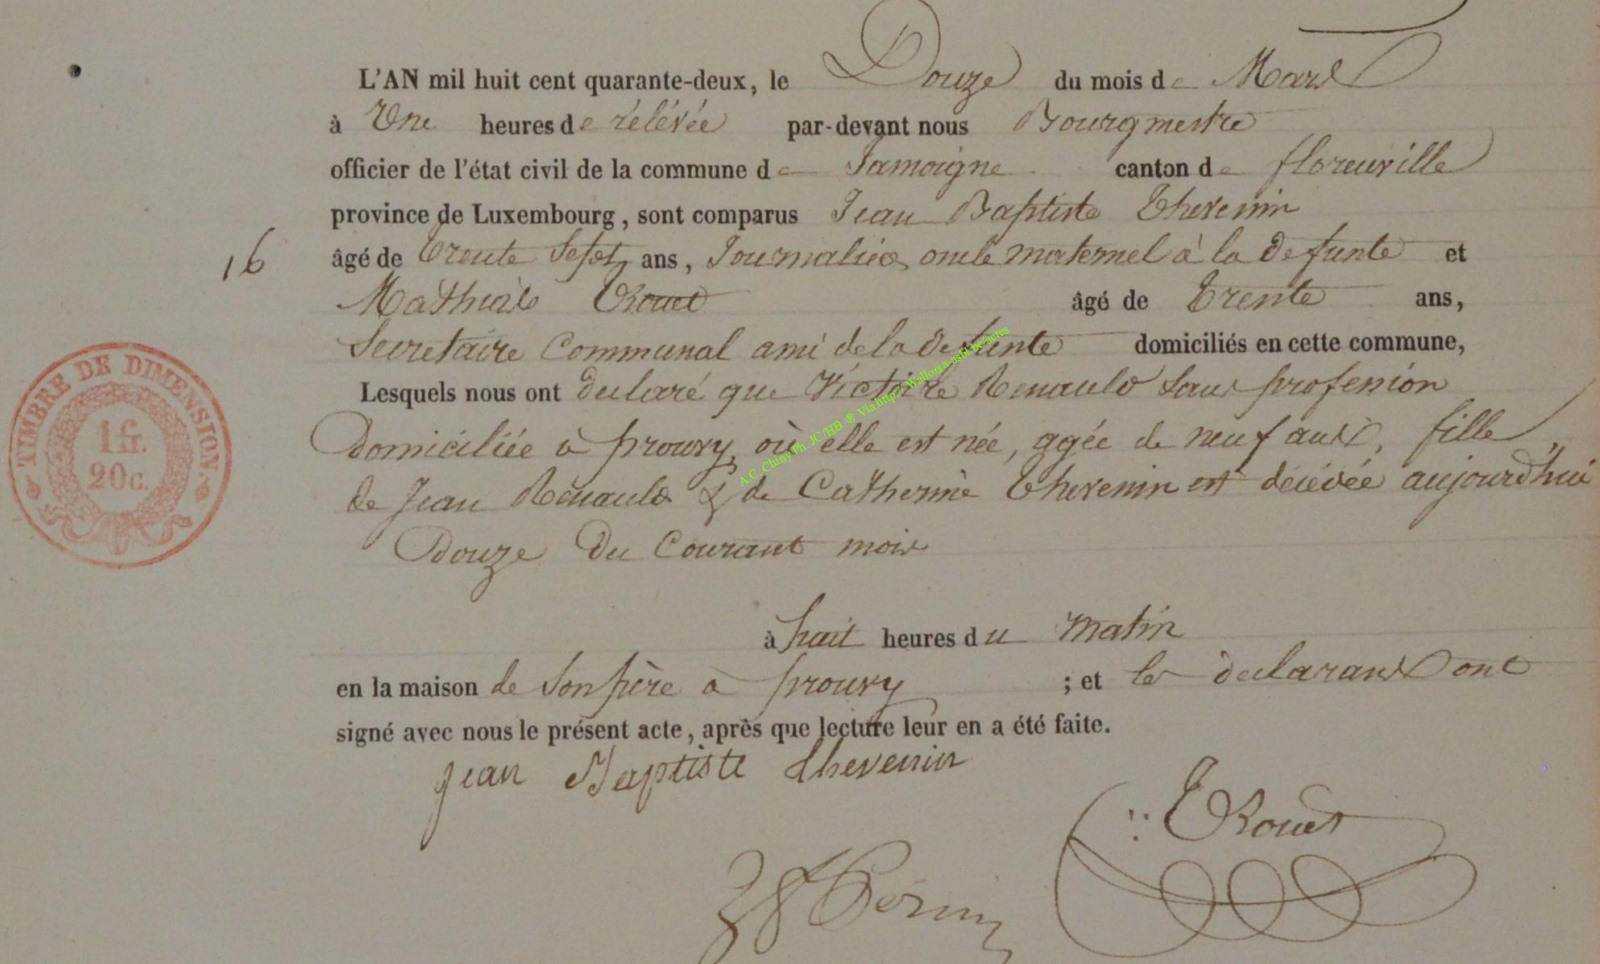 L'AN mil huit cent quarante-deux, le Douze du mois de Mars
à Une heures de rélévée par-devant nous Bourgmestre
officier de l'état civil de la commune de Jamoigne canton de florenville
province de Luxembourg, sont comparus Jean Baptiste Thevenin
16 âgé de trente Sept ans, Journalier, oncle maternel à la defunte et
Mathias Trouet âgé de trente ans,
Secretaire Communal ami de la defunte domiciliés en cette commune,
Lesquels nous ont declaré que Victoire Renauld Sans profession
Domiciliée à prouvy, où elle est née, agée de neuf ans, fille
de Jean Renauld & de Catherine Thevenin est décédée aujourd'hui
Douze du Courant mois
à huit heures du matin
en la maison de Son père à prouvy ; et les declarans ont
signé avec nous le présent acte, après que lecture leur en a été faite.
Jean Baptiste thevenin
Trouet
Perin
TIMBRE DE DIMENSION.
1 fr.
20 c.